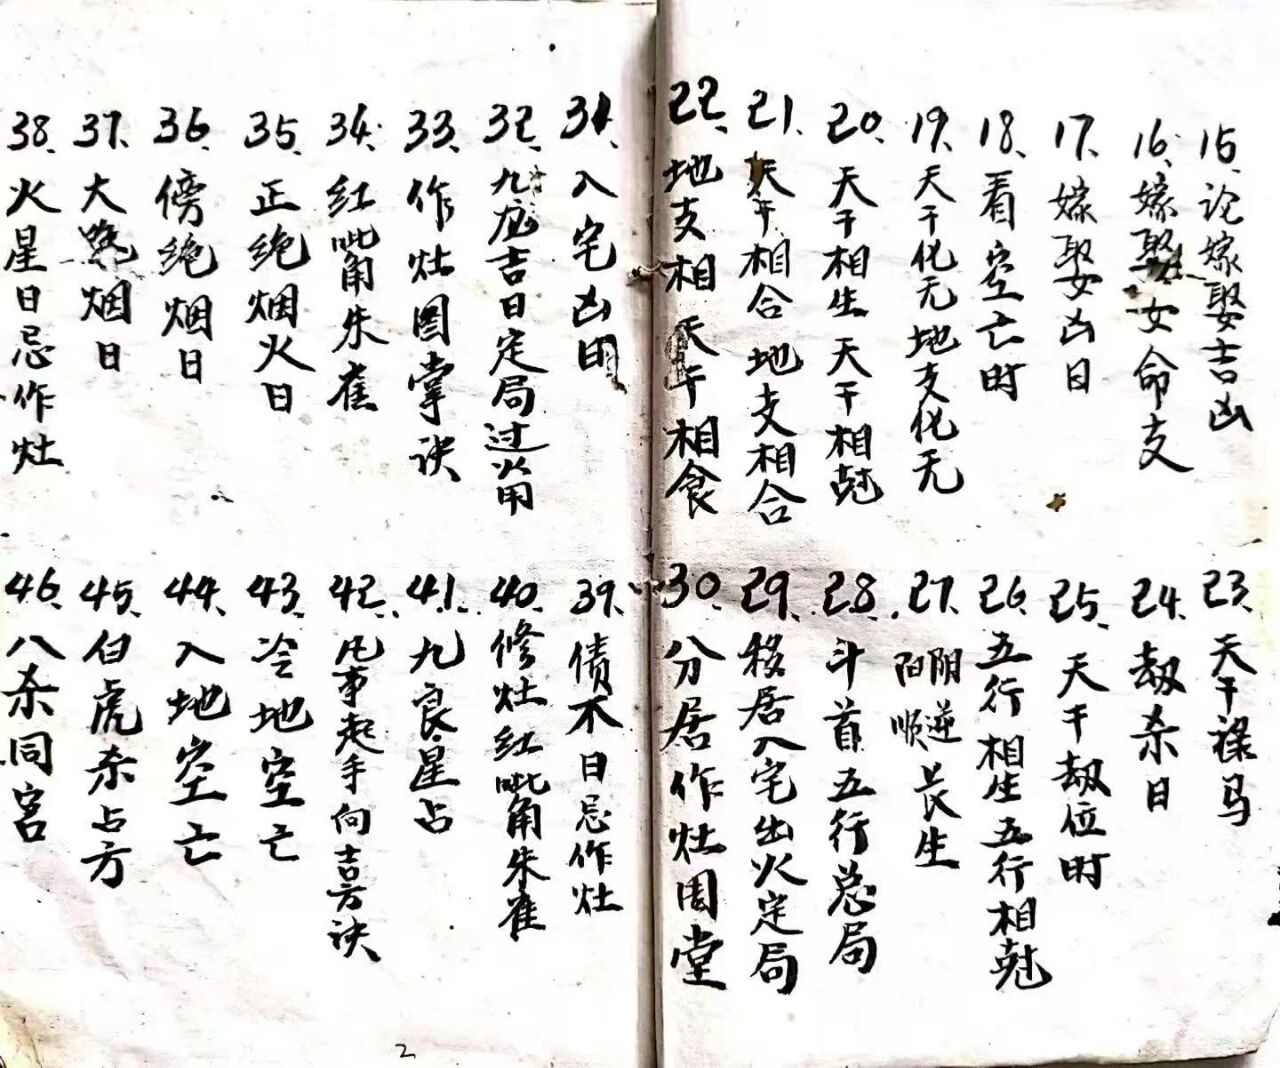 15、论嫁娶吉凶
16、嫁娶女命支
17、嫁娶凶日
18、看空亡时
19、天干化无地支化无
20、天干相生天干相尅
21、天干相合地支相合
22、地支相 天干相食
23、天干禄马
24、劫杀日
25、天干劫位时
26、五行相生五行相尅
27、阴逆阳顺长生
28、斗首五行总局
29、移居入宅出火定局
30、分居作灶周堂
31、入宅凶日
32、九 吉日定局过 用
33、作灶图掌诀
34、红 角朱雀
35、正绝烟火日
36、傍绝烟日
37、大 烟日
38、火星日忌作灶
39、债不日忌作灶
40、修灶红 角朱雀
41、九良星占
42、凡事起手向吉方诀
43、冷地空亡
44、入地空亡
45、白虎杀占方
46、八杀同宫
2